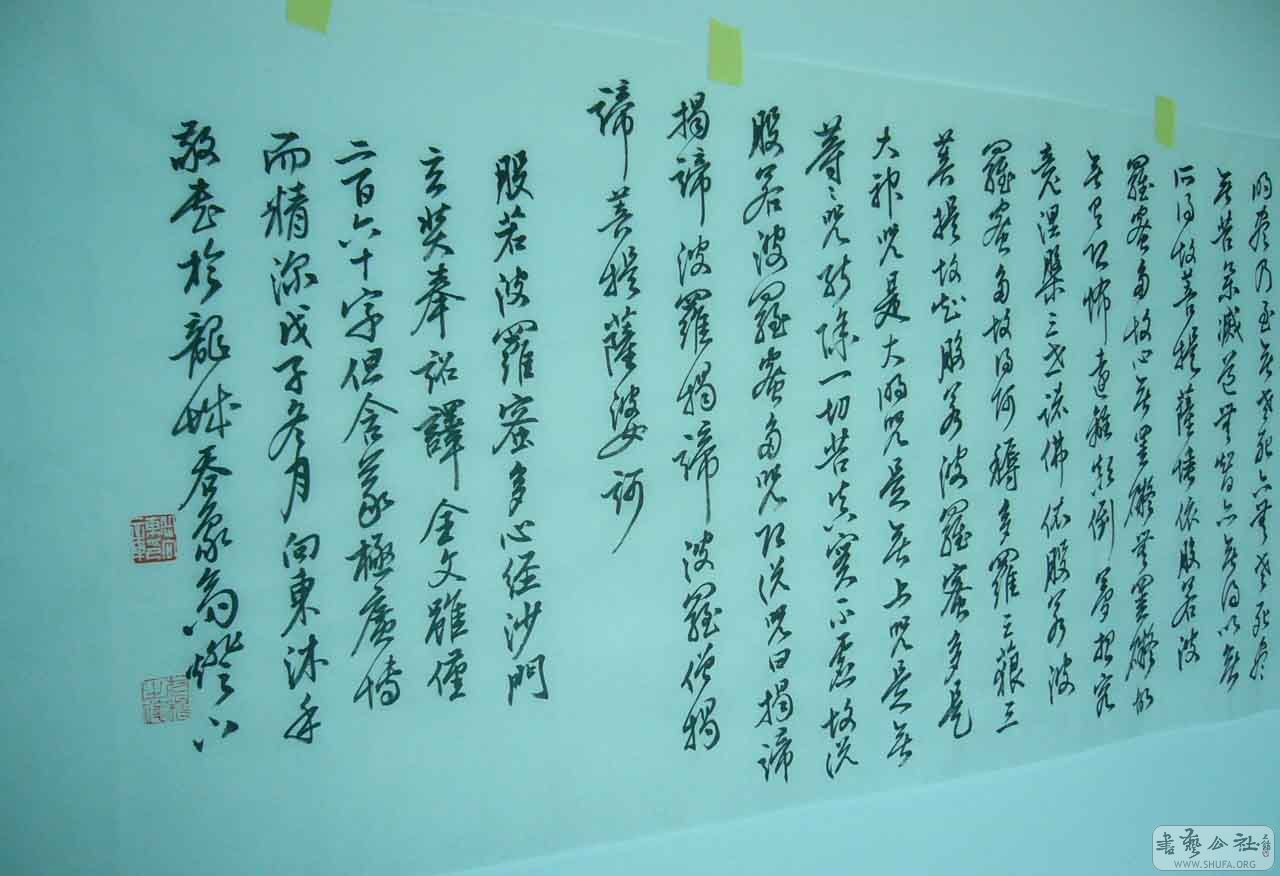 明盡乃至無老死亦無老死盡
無苦集滅道無智亦無得以無
所得故菩提薩埵依般若波
羅蜜多故心無罣礙無罣礙故
無有恐怖遠離顛倒夢想究
竟涅槃三世諸佛依般若波
羅蜜多故得阿耨多羅三藐三
菩提故知般若波羅蜜多是
大神咒是大明咒是無上咒是無
等々咒能除一切苦真實不虛故說
般若波羅蜜多咒即說咒曰揭諦
揭諦波羅揭諦波羅僧揭
諦菩提薩婆訶
般若波羅蜜多心經沙門
玄奘奉詔譯全文雖僅
二百六十字但含義極廣博
而精深戊子冬月向東沐手
敬書於龍城吞象齋燈下
書藝公社
WWW.SHUFA.ORG